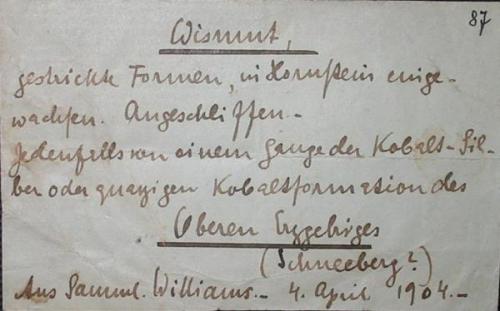 87
Wismut,
gestrickte Formen, in Hornstein einge-
wachsen. Angeschliffen.-
Jedenfalls von einem Gange der Kobalt-Sil-
ber oder quarzigen Kobaltformation des
Oberen Erzgebirges
(Schneeberg?)
Aus Samml. Williams.- 4. April 1904.-